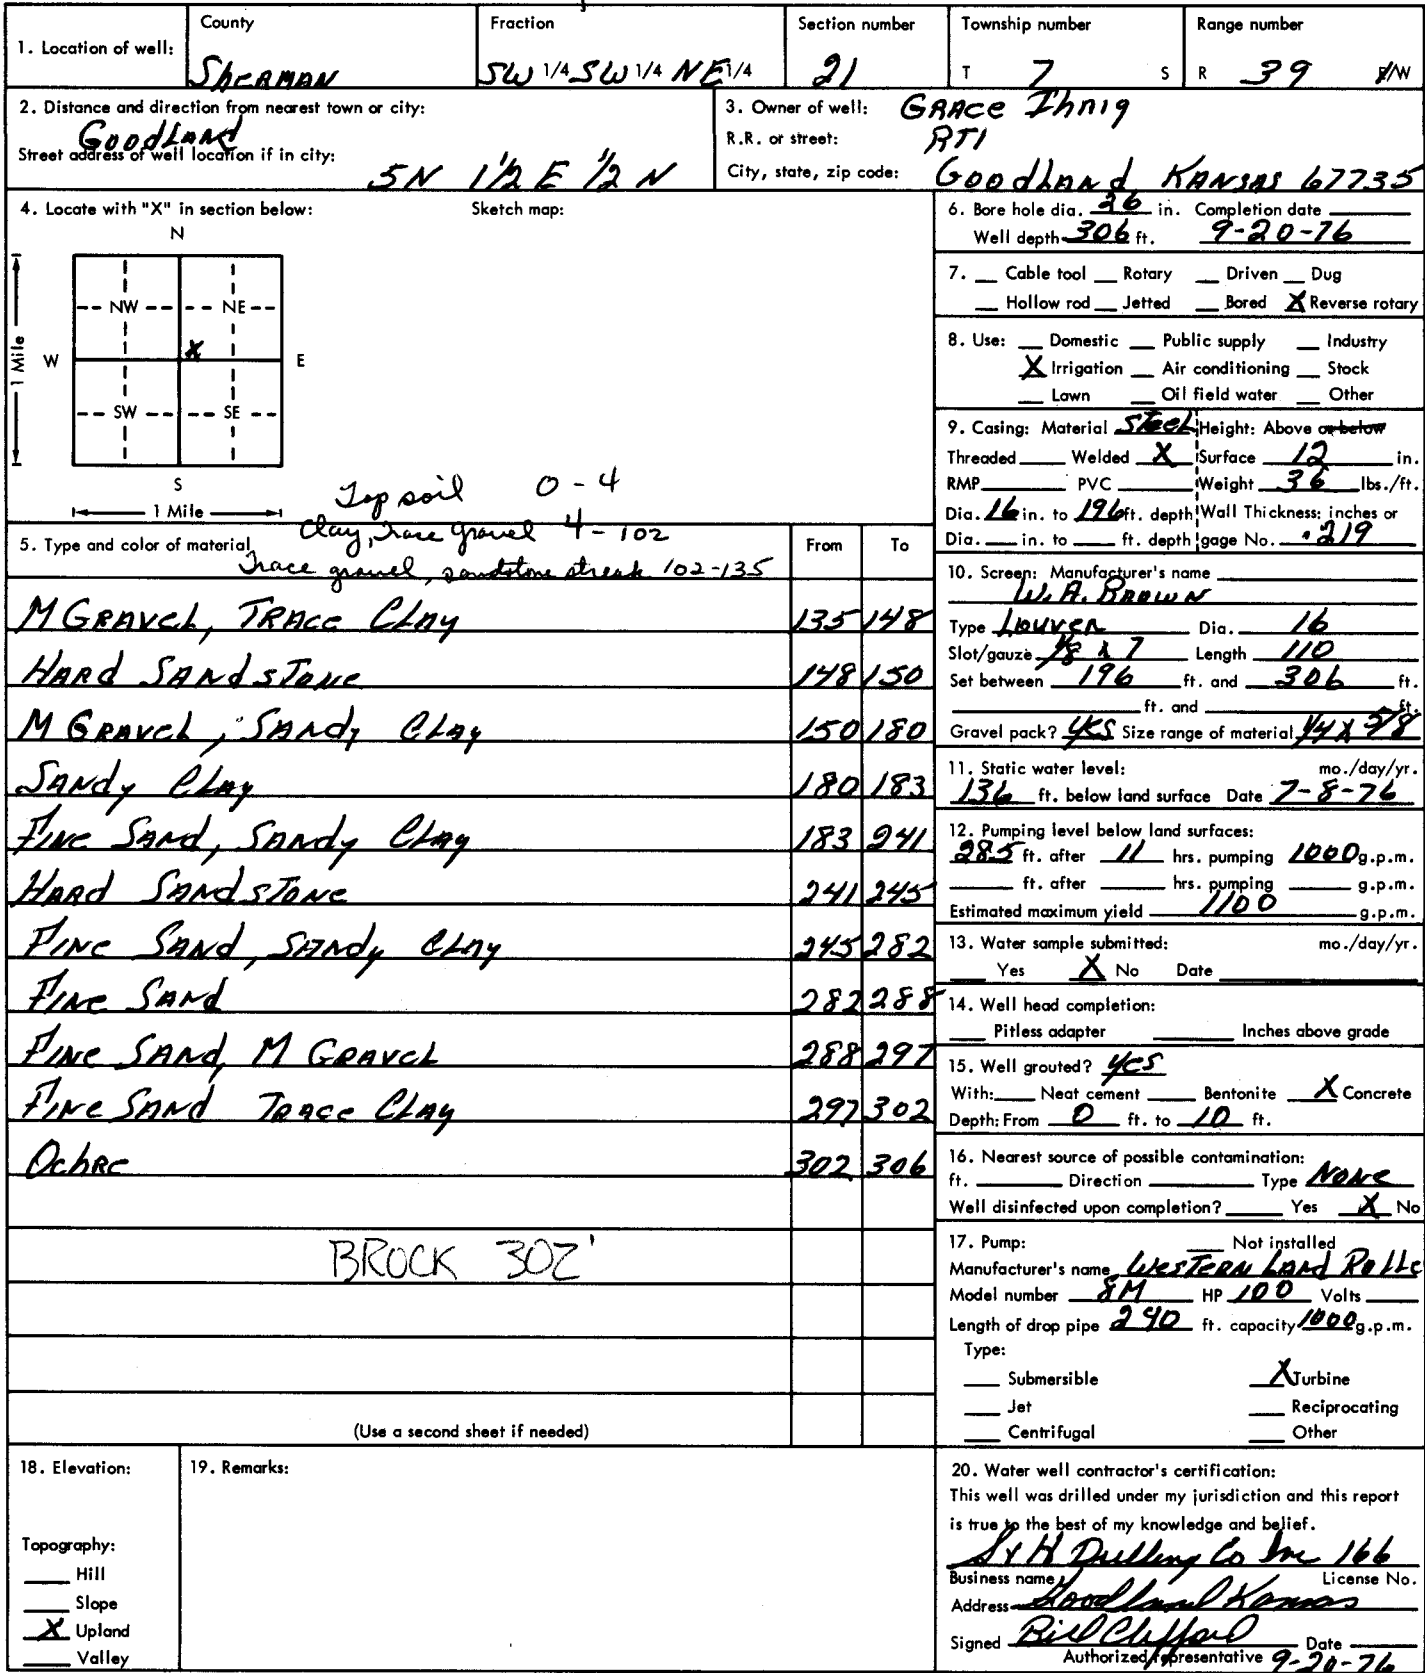 County Fraction Section number Township number Range number
1. Location of well: Sherman SW 1/4 SW 1/4 NE 1/4 21 T 7 S R 39 E/W
2. Distance and direction from nearest town or city:
Goodland
Street address of well location if in city:
5N 1 1/2 E 1/2 N
3. Owner of well: Grace Ihnig
R.R. or street: RT1
City, state, zip code: Goodland, Kansas 67735
4. Locate with "X" in section below: Sketch map:
N
NW NE
X
W E
SW SE
S
1 Mile
1 Mile
Top soil 0-4
Clay, Trace gravel 4-102
5. Type and color of material From To
Trace gravel, sandstone streak 102-135
M Gravel, Trace Clay 135 148
Hard Sandstone 148 150
M Gravel, Sandy Clay 150 180
Sandy Clay 180 183
Fine Sand, Sandy Clay 183 241
Hard Sandstone 241 245
Fine Sand, Sandy Clay 245 282
Fine Sand 282 288
Fine Sand, M Gravel 288 297
Fine Sand Trace Clay 297 302
Ochre 302 306
BROCK 302'
(Use a second sheet if needed)
6. Bore hole dia. 26 in. Completion date
Well depth 306 ft. 9-20-76
7. Cable tool Rotary Driven Dug
Hollow rod Jetted Bored X Reverse rotary
8. Use: Domestic Public supply Industry
X Irrigation Air conditioning Stock
Lawn Oil field water Other
9. Casing: Material Steel Height: Above or below
Threaded Welded X Surface 12 in.
RMP PVC Weight 36 lbs./ft.
Dia. 16 in. to 196 ft. depth Wall Thickness: inches or
Dia. in. to ft. depth gage No. .219
10. Screen: Manufacturer's name
W.A. Brown
Type Louver Dia. 16
Slot/gauze 1/8 x 7 Length 110
Set between 196 ft. and 306 ft.
ft. and ft.
Gravel pack? Yes Size range of material 1/4 x 5/8
11. Static water level: mo./day/yr.
136 ft. below land surface Date 7-8-76
12. Pumping level below land surfaces:
285 ft. after 11 hrs. pumping 1000 g.p.m.
ft. after hrs. pumping g.p.m.
Estimated maximum yield 1100 g.p.m.
13. Water sample submitted: mo./day/yr.
Yes X No Date
14. Well head completion:
Pitless adapter Inches above grade
15. Well grouted? Yes
With: Neat cement Bentonite X Concrete
Depth: From 0 ft. to 10 ft.
16. Nearest source of possible contamination:
ft. Direction Type None
Well disinfected upon completion? Yes X No
17. Pump: Not installed
Manufacturer's name Western Land Rolle
Model number 8M HP 100 Volts
Length of drop pipe 240 ft. capacity 1000 g.p.m.
Type:
Submersible X Turbine
Jet Reciprocating
Centrifugal Other
18. Elevation:
Topography:
Hill
Slope
X Upland
Valley
19. Remarks:
20. Water well contractor's certification:
This well was drilled under my jurisdiction and this report
is true to the best of my knowledge and belief.
S & H Drilling Co Inc 166
Business name License No.
Address Goodland Kansas
Signed Bill Clifford Date
Authorized representative 9-20-76